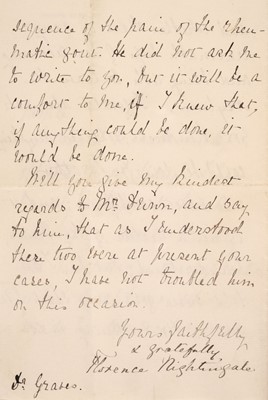 sequence of the pain of the rheu-
matic gout. He did not ask me
to write to you, but it will be a
comfort to me, if I knew that,
if anything could be done, it
would be done.
Will you give my kindest
regards to Mr. Dunn, and say
to him, that as I understood
these two were at present your
cases, I have not troubled him
on this occasion.
Yours faithfully
& gratefully
Florence Nightingale.
Dr Graves.